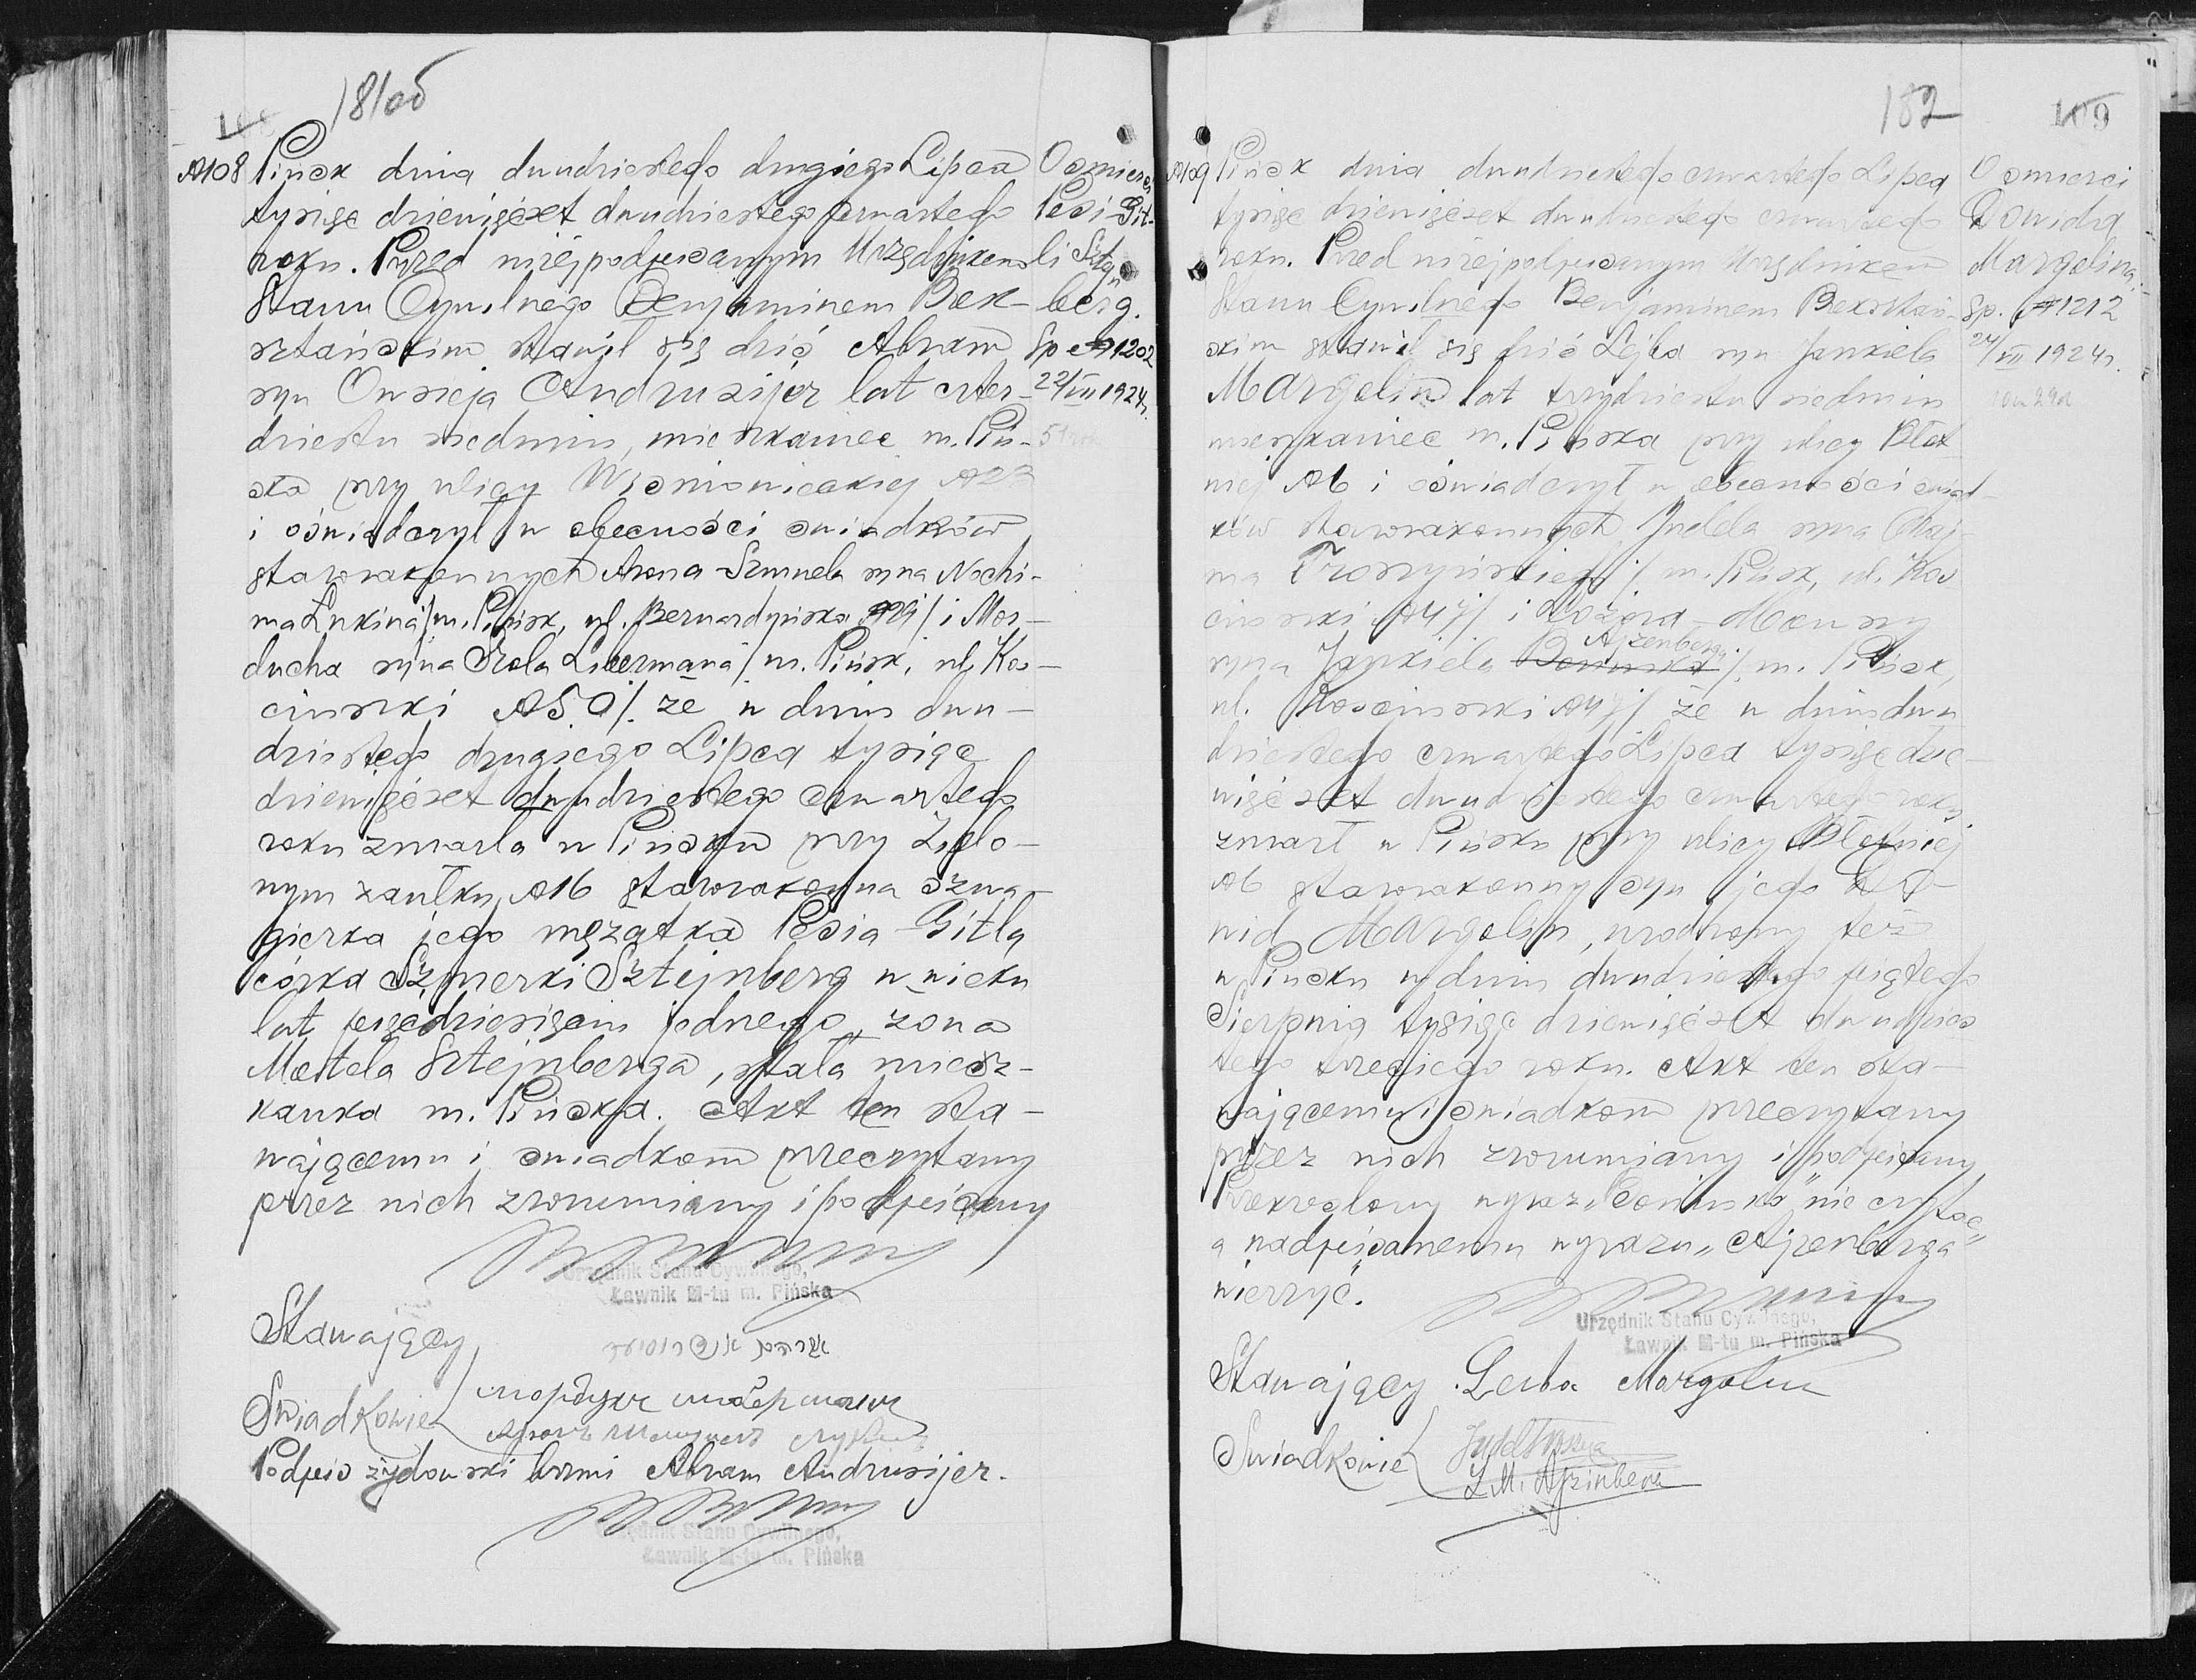 181об
108
№108
Pińsk dnia dwudziestego drugiego Lipca
tysiąc dziewięćset dwudziestego czwartego
roku. Przed niżej podpisanym Urzędnikiem
Stanu Cywilnego Benjaminem Bek-
sztańskim stawił się dziś Abram
syn Owsieja Andrusijer lat czter-
dziestu siedmiu, mieszkaniec m. Piń-
ska przy ulicy Wiśniowieckiej №23
i oświadczył w obecności świadków
starozakonnych Arona-Szmuela syna Nochi-
ma Lukina /m. Pińsk, ul. Bernardyńska / i Mor-
ducha syna Srola Libermana / m. Pińsk, ul. Koś-
ciuszki №50/. że w dniu dwu-
dziestego drugiego Lipca tysiąc
dziewięćset dwudziestego czwartego
roku zmarła w Pińsku przy Zielo-
nym zaułku №16 starozakonna szwa-
gierka jego mężatka Pesia-Gitla
córka Szmerki Sztejnberg w wieku
lat pięćdziesięciu jednego, żona
Motela Sztejnberga, stała miesz-
kanka m. Pińska. Akt ten sta-
wającemu i świadkom przeczytany
przez nich zrozumiany i podpisany
Urzędnik Stanu Cywilnego,
Ławnik M-tu m. Pińska
Stawający
Świadkowie
Мордух Либерман
Podpis żydowski brzmi Abram Andrusijer.
Urzędnik Stanu Cywilnego,
Ławnik M-tu m. Pińska
O śmierci
Pesi-Git-
li Sztejn
berg.
Sp №1202
22/VII 1924r.
182
109
№109
Pińsk dnia dwudziestego czwartego Lipca
tysiąc dziewięćset dwudziestego czwartego
roku. Przed niżej podpisanym Urzędnikiem
Stanu Cywilnego Benjaminem Beksztań-
skim stawił się dziś Lejba syn Jankiela
Margolin lat trzydziestu siedmiu
mieszkaniec m. Pińska przy ulicy Błot
niej №6 i oświadczył w obecności świad-
ków starozakonnych Judela syna Chaj-
ma / m. Pińsk, ul. Koś
ciuszki №47/ i
Ajzenberga
syna Jankiela /. m. Pińsk,
ul. Kościuszki №47/ że w dniu dwu
dziestego czwartego Lipca tysiąc dzie-
więćset dwudziestego czwartego roku
zmarł w Pińsku przy ulicy Błotniej
№6 starozakonny syn jego Do-
wid Margolin, urodzony też
w Pińsku w dniu dwudziestego piątego
Sierpnia tysiąc dziewięćset dwudzies
tego trzeciego roku. Akt ten sta-
wającemu i świadkom przeczytany
przez nich zrozumiany i podpisany
Przekreślony wyraz nie czytać
a nadpisanemu wyrazu „Ajzenberga"
wierzyć.
Urzędnik Stanu Cywilnego,
Ławnik M-tu m. Pińska
Stawający Leiba Margolin
Świadkowie
L M. Ajzinberg
O śmierci
Dowida
Margolina
Sp. №1212
24/VII 1924r.